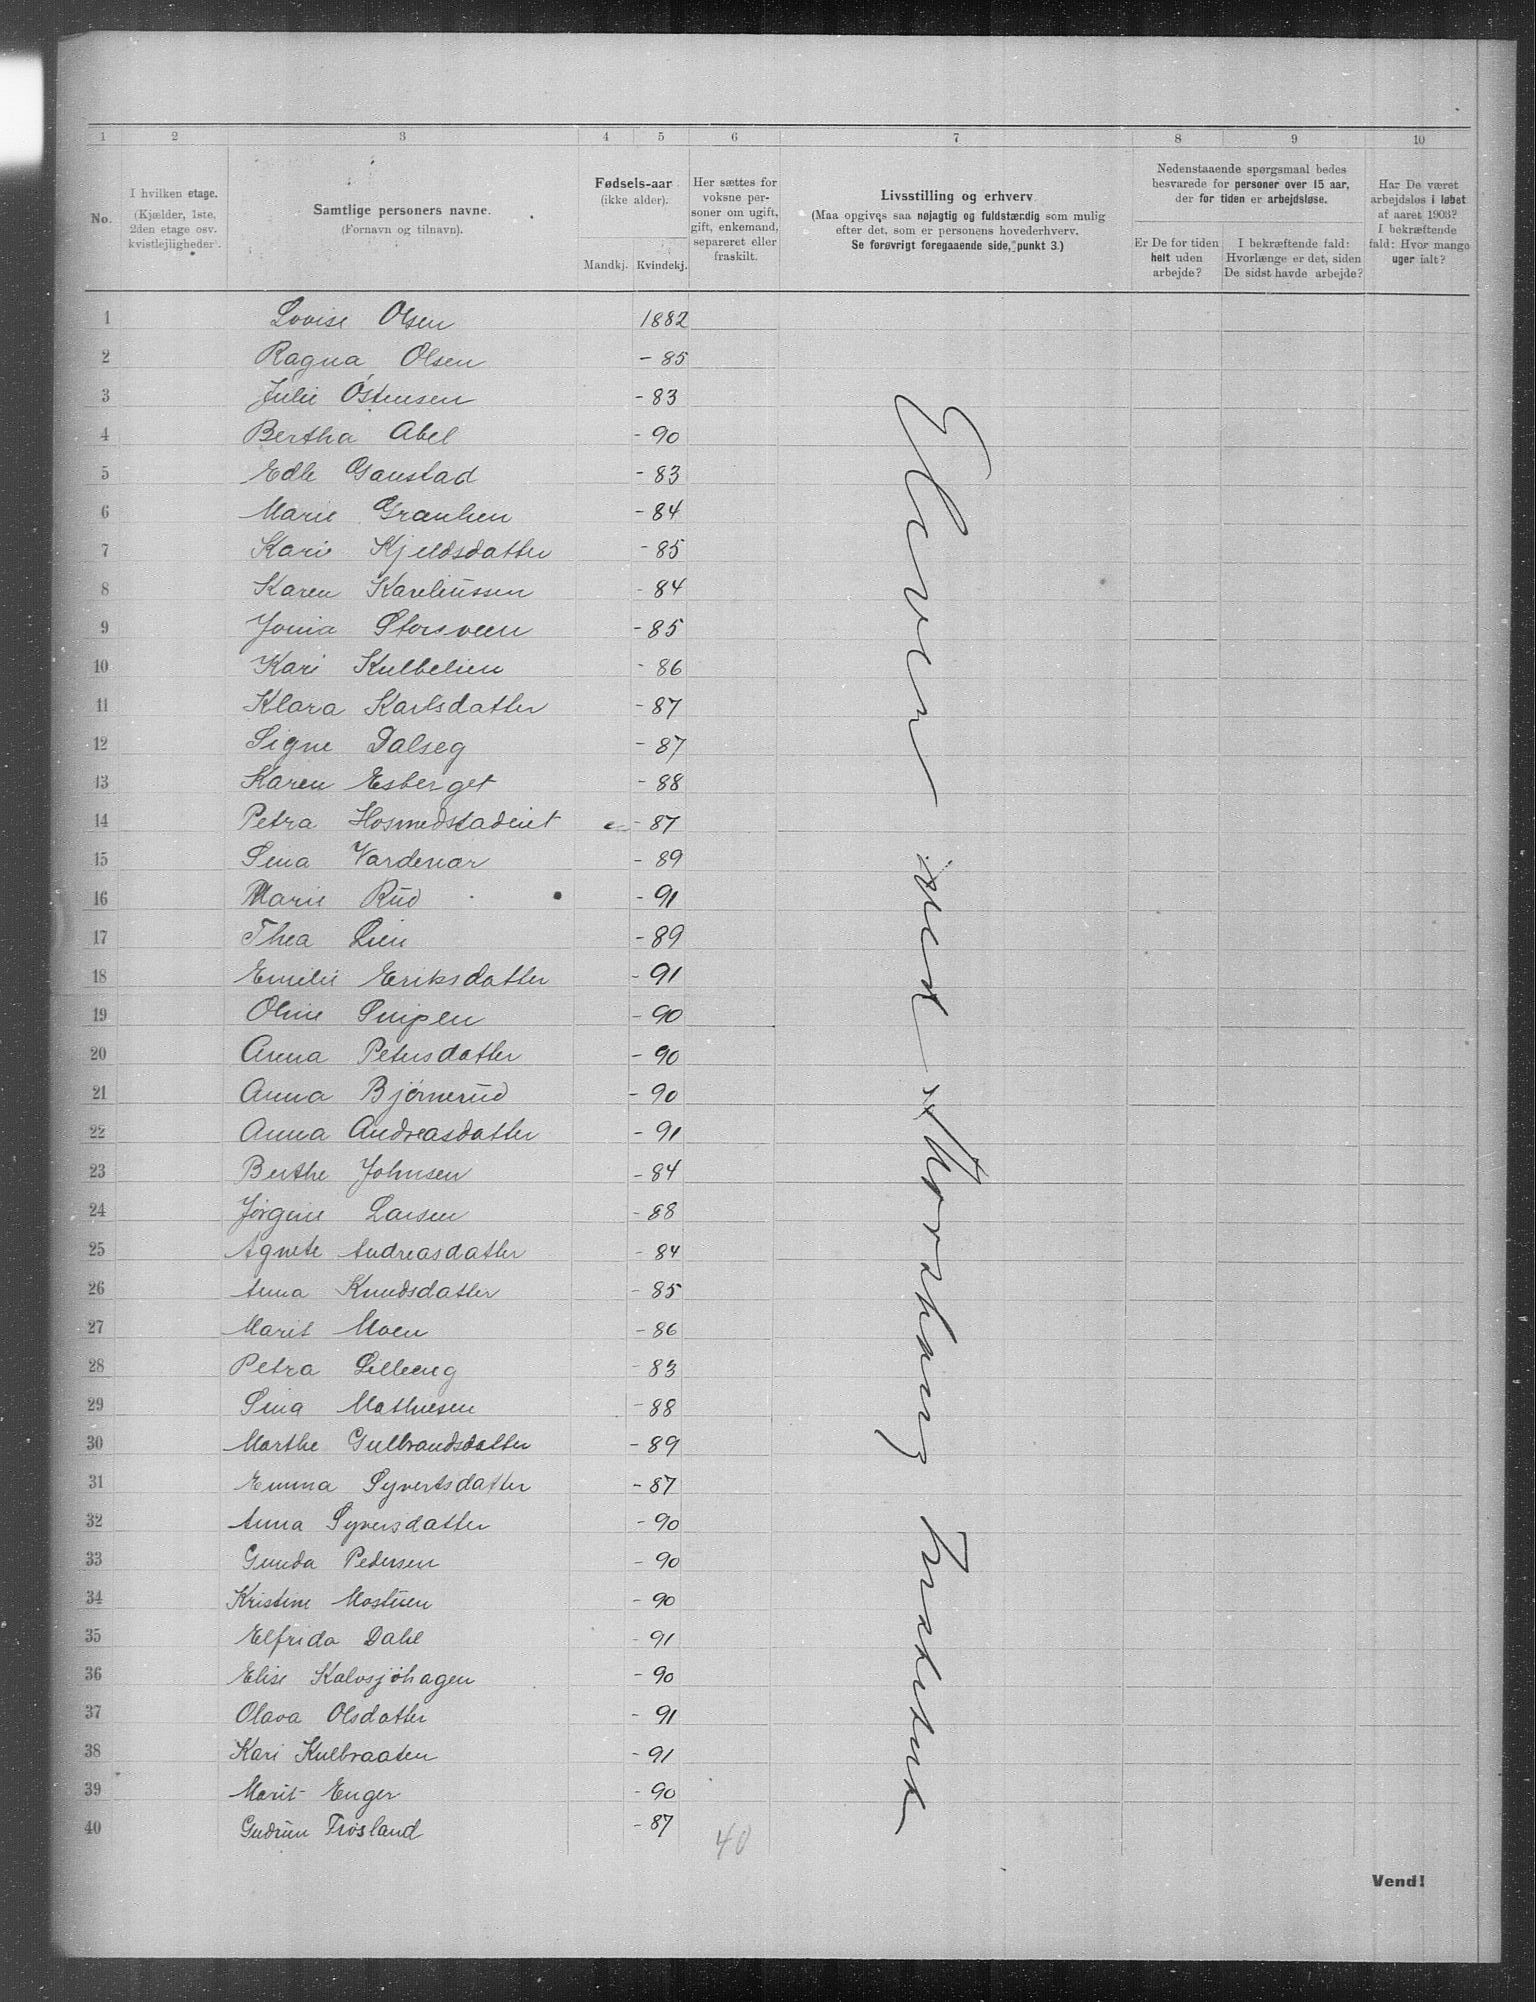 1 2 3 4 5 6 7 8 9 10
No.
I hvilken etage.
(Kjælder, 1ste,
2den etage osv.
kvistlejligheder.
Samtlige personers navne.
(Fornavn og tilnavn).
Fødsels-aar
(ikke alder).
Mandkj. Kvindekj.
Her sættes for
voksne per-
soner om ugift,
gift, enkemand,
separeret eller
fraskilt.
Livsstilling og erhverv
(Maa opgives saa nøjagtig og fuldstændig som mulig
efter det, som er personens hovederhverv.
Se forøvrigt foregaaende side, punkt 3.)
Nedenstaaende spørgsmaal bedes
besvarede for personer over 15 aar,
der for tiden er arbejdsløse.
Er De for tiden
helt uden
arbejde?
I bekræftende fald:
Hvorlænge er det, siden
De sidst havde arbejde?
Har De været
arbejdsløs i løbet
af aaret 1903?
I bekræftende
fald: Hvor mange
uger ialt?
1 Lovise Olsen 1882
2 Ragna Olsen - 85
3 Julie Østensen - 83
4 Bertha Abel - 90
5 Edle Ganstad - 83
6 Marie Granlien - 84
7 Kari Kjeldsdatter - 85
8 Karen Kareliussen - 84
9 Jonia Storsveen - 85
10 Kari Kulbelien - 86
11 Klara Karlsdatter - 87
12 Signe Dalseg - 87
13 Karen Esberget - 88
14 Petra - 87
15 Sina Vardenær - 89
16 Marie Rud - 91
17 Thea Lien - 89
18 Emelie Eriksdatter - 91
19 Oline Snipen - 90
20 Anna Petersdatter - 90
21 Anna Bjørnerud - 90
22 Anna Andreasdatter - 91
23 Berthe Johnsen - 84
24 Jørgine Larsen - 88
25 Agnete Andreasdatter - 84
26 Anna Knudsdatter - 85
27 Marit Moen - 86
28 Petra Lilleeng - 83
29 Sina Mathiesen - 88
30 Marthe Gulbrandsdatter - 89
31 Emma Syvertsdatter - 87
32 Anna Syversdatter - 90
33 Gunda Pedersen - 90
34 Kristine Mostuen - 90
35 Elfrida Dahl - 91
36 Elise Kalvsjøhagen - 90
37 Olava Olsdatter - 91
38 Kari Kulbraaten - 91
39 Marit Enger - 90
40 Gudrun Frøsland - 87
40
Elever ved
Vend!